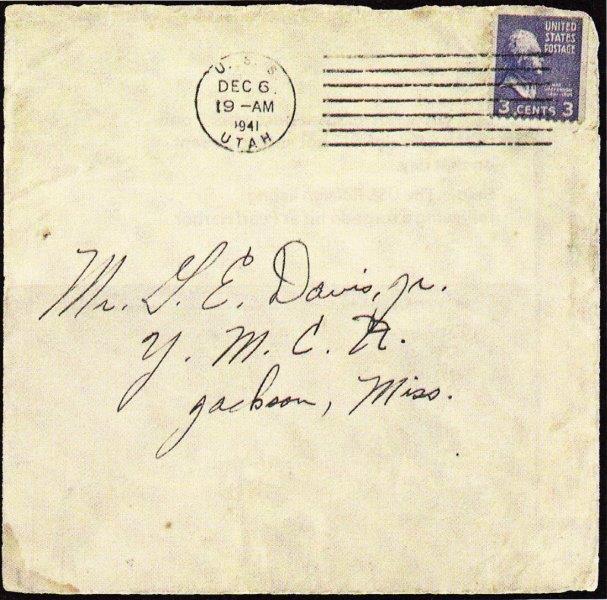 U. S. S.
DEC 6
19 -AM
1941
UTAH
UNITED
STATES
POSTAGE
3 CENTS 3
Mr. G. E. Davis, jr.
Y. M. C. A.
Jackson, Miss.